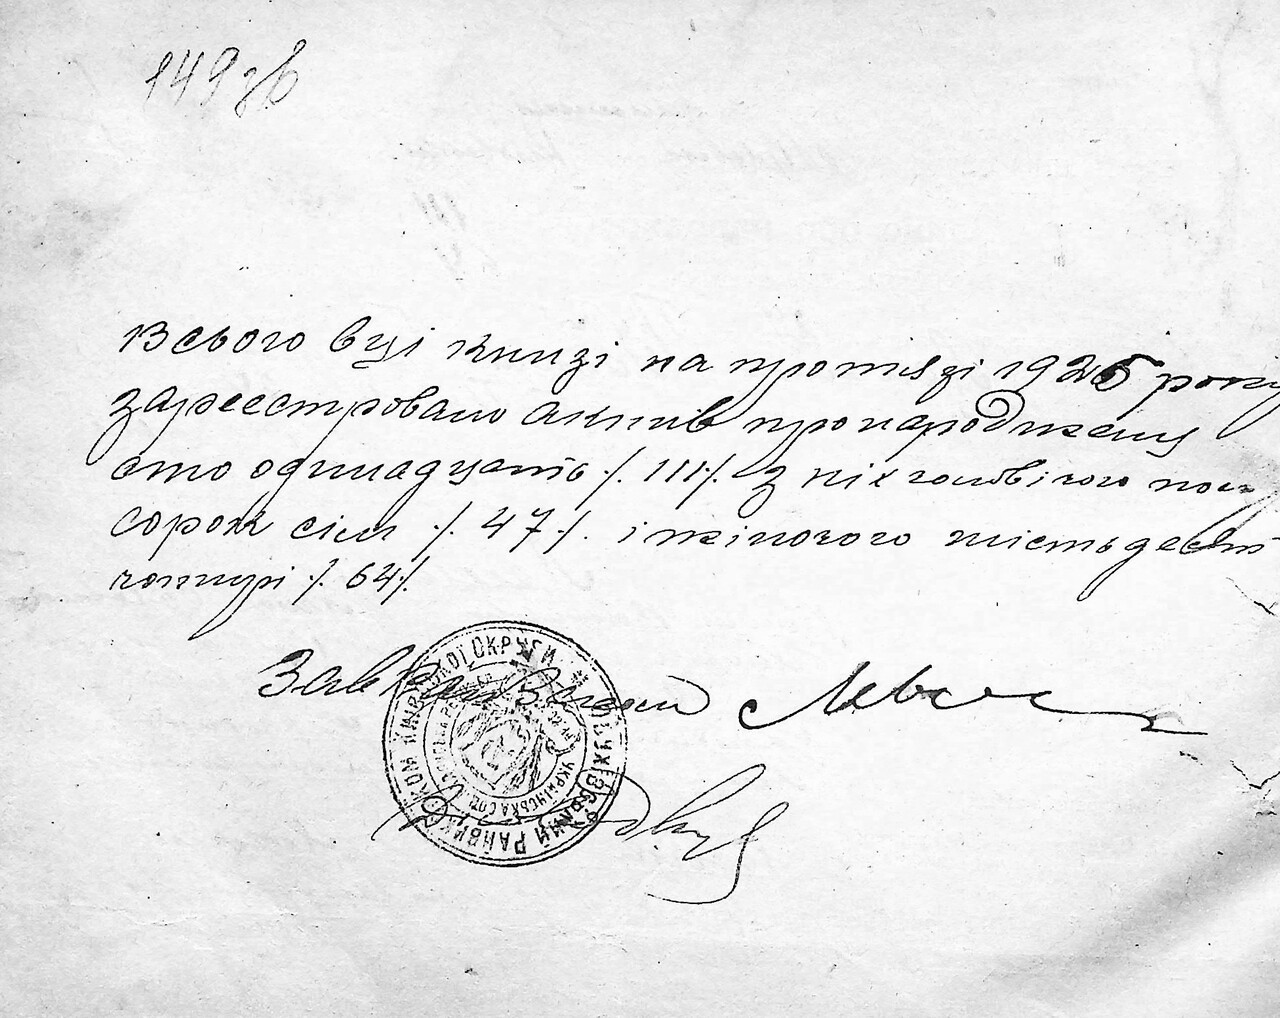 149 зв
Всього в ції книзі на протязі 1926 року
зареєстровано актів про народження
сто одинадцять /. 111 /. з них чоловічого полу
сорок сім /. 47 /. і жіночого шістьдесят
чотирі /. 64 /.
Зав
ОКРУГИ
УКРАЇНСЬКА СОЦ.